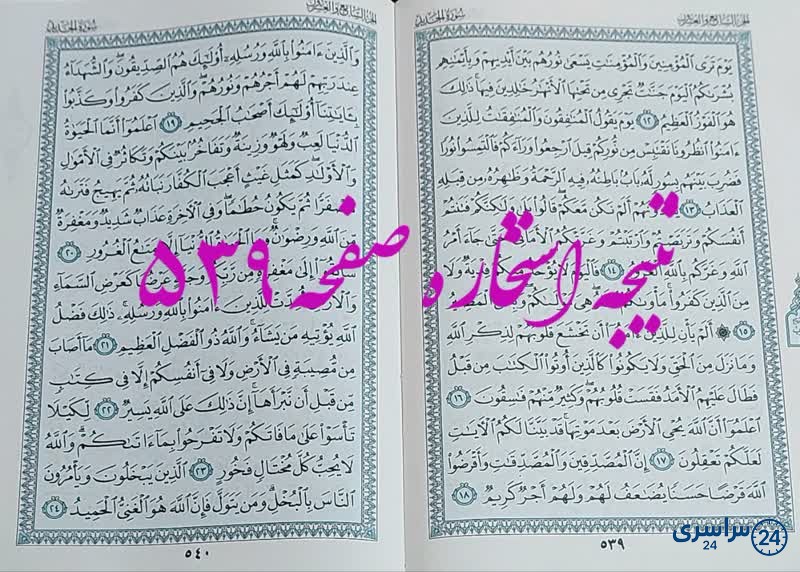 الجزء السابع والعشرون
سورة الحديد
يَوْمَ تَرَى ٱلْمُؤْمِنِينَ وَٱلْمُؤْمِنَٰتِ يَسْعَىٰ نُورُهُم بَيْنَ أَيْدِيهِمْ وَبِأَيْمَٰنِهِم
بُشْرَىٰكُمُ ٱلْيَوْمَ جَنَّٰتٌ تَجْرِى مِن تَحْتِهَا ٱلْأَنْهَٰرُ خَٰلِدِينَ فِيهَا ذَٰلِكَ
هُوَ ٱلْفَوْزُ ٱلْعَظِيمُ ١٢ يَوْمَ يَقُولُ ٱلْمُنَٰفِقُونَ وَٱلْمُنَٰفِقَٰتُ لِلَّذِينَ
ءَامَنُوا۟ ٱنظُرُونَا نَقْتَبِسْ مِن نُّورِكُمْ قِيلَ ٱرْجِعُوا۟ وَرَآءَكُمْ فَٱلْتَمِسُوا۟ نُورًا
فَضُرِبَ بَيْنَهُم بِسُورٍ لَّهُۥ بَابٌۢ بَاطِنُهُۥ فِيهِ ٱلرَّحْمَةُ وَظَٰهِرُهُۥ مِن قِبَلِهِ
ٱلْعَذَابُ ١٣ أَلَمْ نَكُن مَّعَكُمْ قَالُوا۟ بَلَىٰ وَلَٰكِنَّكُمْ فَتَنتُمْ
أَنفُسَكُمْ وَتَرَبَّصْتُمْ وَٱرْتَبْتُمْ وَغَرَّتْكُمُ ٱلْأَمَانِىُّ حَتَّىٰ جَآءَ أَمْرُ
ٱللَّهِ وَغَرَّكُم بِٱللَّهِ ٱلْغَرُورُ ١٤ فَٱلْيَوْمَ لَا يُؤْخَذُ مِنكُمْ فِدْيَةٌ وَلَا
مِنَ ٱلَّذِينَ كَفَرُوا۟ مَأْوَىٰكُمُ هِىَ مَوْلَىٰكُمْ وَبِئْسَ ٱلْمَصِيرُ
١٥ أَلَمْ يَأْنِ لِلَّذِينَ ءَامَنُوٓا۟ أَن تَخْشَعَ قُلُوبُهُمْ لِذِكْرِ ٱللَّهِ
وَمَا نَزَلَ مِنَ ٱلْحَقِّ وَلَا يَكُونُوا۟ كَٱلَّذِينَ أُوتُوا۟ ٱلْكِتَٰبَ مِن قَبْلُ
فَطَالَ عَلَيْهِمُ ٱلْأَمَدُ فَقَسَتْ قُلُوبُهُمْ وَكَثِيرٌ مِّنْهُمْ فَٰسِقُونَ ١٦
ٱعْلَمُوٓا۟ أَنَّ ٱللَّهَ يُحْىِ ٱلْأَرْضَ بَعْدَ مَوْتِهَا قَدْ بَيَّنَّا لَكُمُ ٱلْءَايَٰتِ
لَعَلَّكُمْ تَعْقِلُونَ ١٧ إِنَّ ٱلْمُصَّدِّقِينَ وَٱلْمُصَّدِّقَٰتِ وَأَقْرَضُوا۟
ٱللَّهَ قَرْضًا حَسَنًا يُضَٰعَفُ لَهُمْ وَلَهُمْ أَجْرٌ كَرِيمٌ ١٨
٥٣٩
الجزء السابع والعشرون
سورة الحديد
وَٱلَّذِينَ ءَامَنُوا۟ بِٱللَّهِ وَرُسُلِهِۦٓ أُو۟لَٰٓئِكَ هُمُ ٱلصِّدِّيقُونَ وَٱلشُّهَدَآءُ
عِندَ رَبِّهِمْ لَهُمْ أَجْرُهُمْ وَنُورُهُمْ وَٱلَّذِينَ كَفَرُوا۟ وَكَذَّبُوا۟
بِـَٔايَٰتِنَآ أُو۟لَٰٓئِكَ أَصْحَٰبُ ٱلْجَحِيمِ ١٩ ٱعْلَمُوٓا۟ أَنَّمَا ٱلْحَيَوٰةُ
ٱلدُّنْيَا لَعِبٌ وَلَهْوٌ وَزِينَةٌ وَتَفَاخُرٌۢ بَيْنَكُمْ وَتَكَاثُرٌ فِى ٱلْأَمْوَٰلِ
وَٱلْأَوْلَٰدِ كَمَثَلِ غَيْثٍ أَعْجَبَ ٱلْكُفَّارَ نَبَاتُهُۥ ثُمَّ يَهِيجُ فَتَرَىٰهُ
مُصْفَرًّا ثُمَّ يَكُونُ حُطَٰمًا وَفِى ٱلْءَاخِرَةِ عَذَابٌ شَدِيدٌ وَمَغْفِرَةٌ
مِّنَ ٱللَّهِ وَرِضْوَٰنٌ وَمَا ٱلْحَيَوٰةُ ٱلدُّنْيَآ إِلَّا مَتَٰعُ ٱلْغُرُورِ ٢٠
سَابِقُوٓا۟ إِلَىٰ مَغْفِرَةٍ مِّن رَّبِّكُمْ وَجَنَّةٍ عَرْضُهَا كَعَرْضِ ٱلسَّمَآءِ
وَٱلْأَرْضِ أُعِدَّتْ لِلَّذِينَ ءَامَنُوا۟ بِٱللَّهِ وَرُسُلِهِۦ ذَٰلِكَ فَضْلُ
ٱللَّهِ يُؤْتِيهِ مَن يَشَآءُ وَٱللَّهُ ذُو ٱلْفَضْلِ ٱلْعَظِيمِ ٢١ مَآ أَصَابَ
مِن مُّصِيبَةٍ فِى ٱلْأَرْضِ وَلَا فِىٓ أَنفُسِكُمْ إِلَّا فِى كِتَٰبٍ
مِّن قَبْلِ أَن نَّبْرَأَهَآ إِنَّ ذَٰلِكَ عَلَى ٱللَّهِ يَسِيرٌ ٢٢ لِّكَيْلَا
تَأْسَوْا۟ عَلَىٰ مَا فَاتَكُمْ وَلَا تَفْرَحُوا۟ بِمَآ ءَاتَىٰكُمْ وَٱللَّهُ
لَا يُحِبُّ كُلَّ مُخْتَالٍ فَخُورٍ ٢٣ ٱلَّذِينَ يَبْخَلُونَ وَيَأْمُرُونَ
ٱلنَّاسَ بِٱلْبُخْلِ وَمَن يَتَوَلَّ فَإِنَّ ٱللَّهَ هُوَ ٱلْغَنِىُّ ٱلْحَمِيدُ ٢٤
٥٤٠
نتیجه استخاره صفحه ۵۳۹
سراسری
24
24